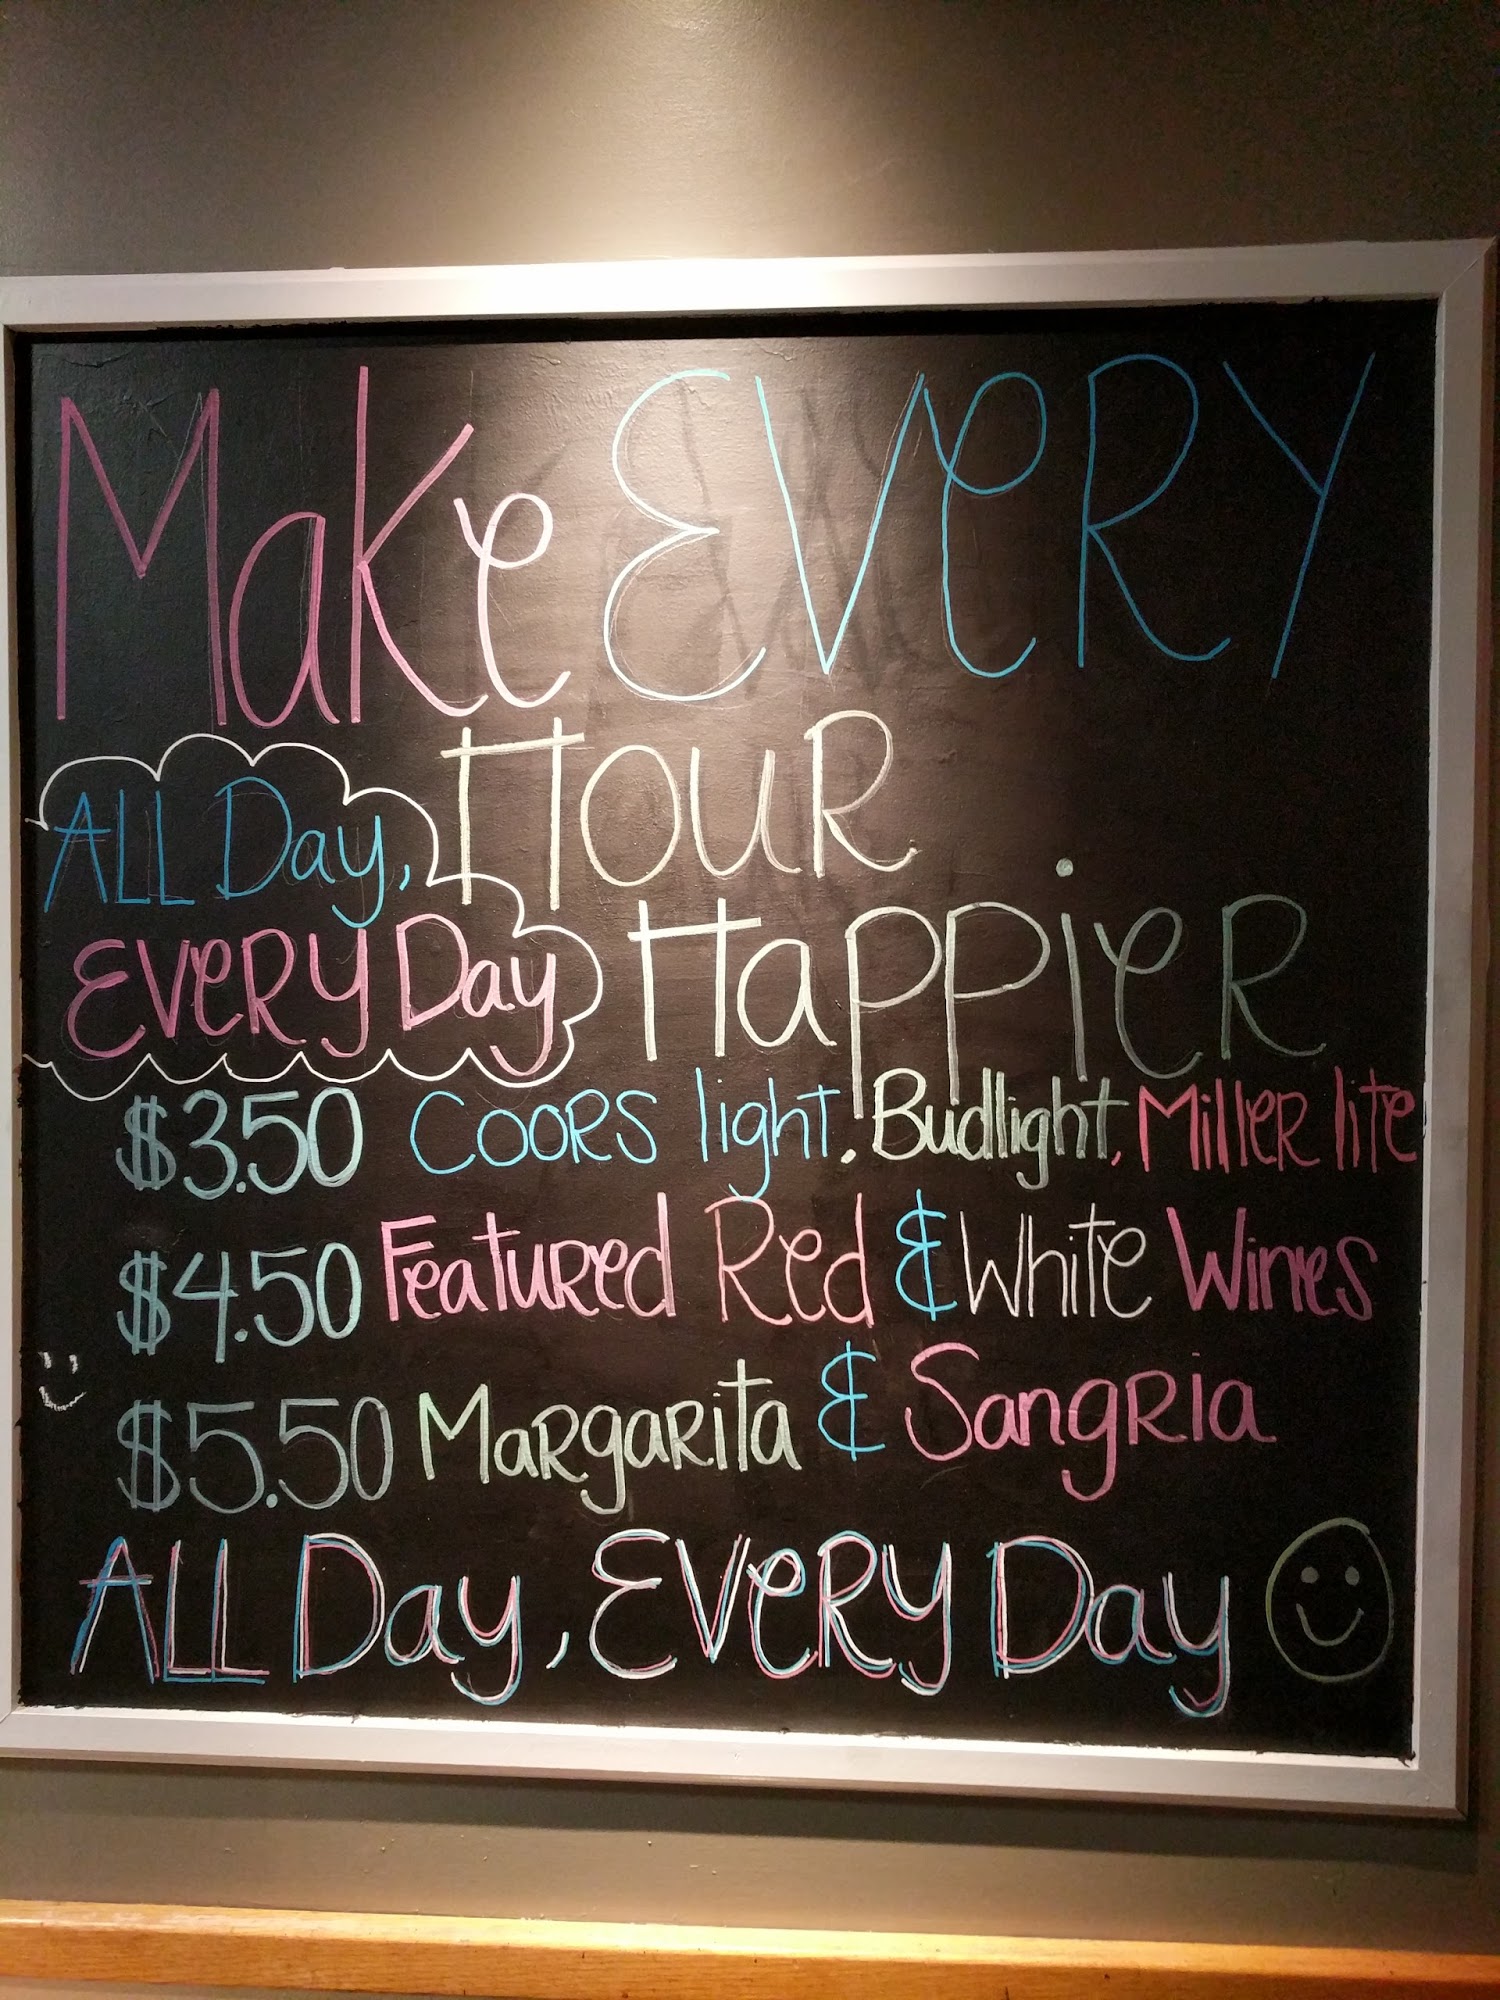 Make EVERY
HOUR
ALL Day,
EVERY Day
Happier
$3.50 Coors light, Budlight, Miller lite
$4.50 Featured Red & White Wines
$5.50 Margarita & Sangria
ALL Day, EVERY Day